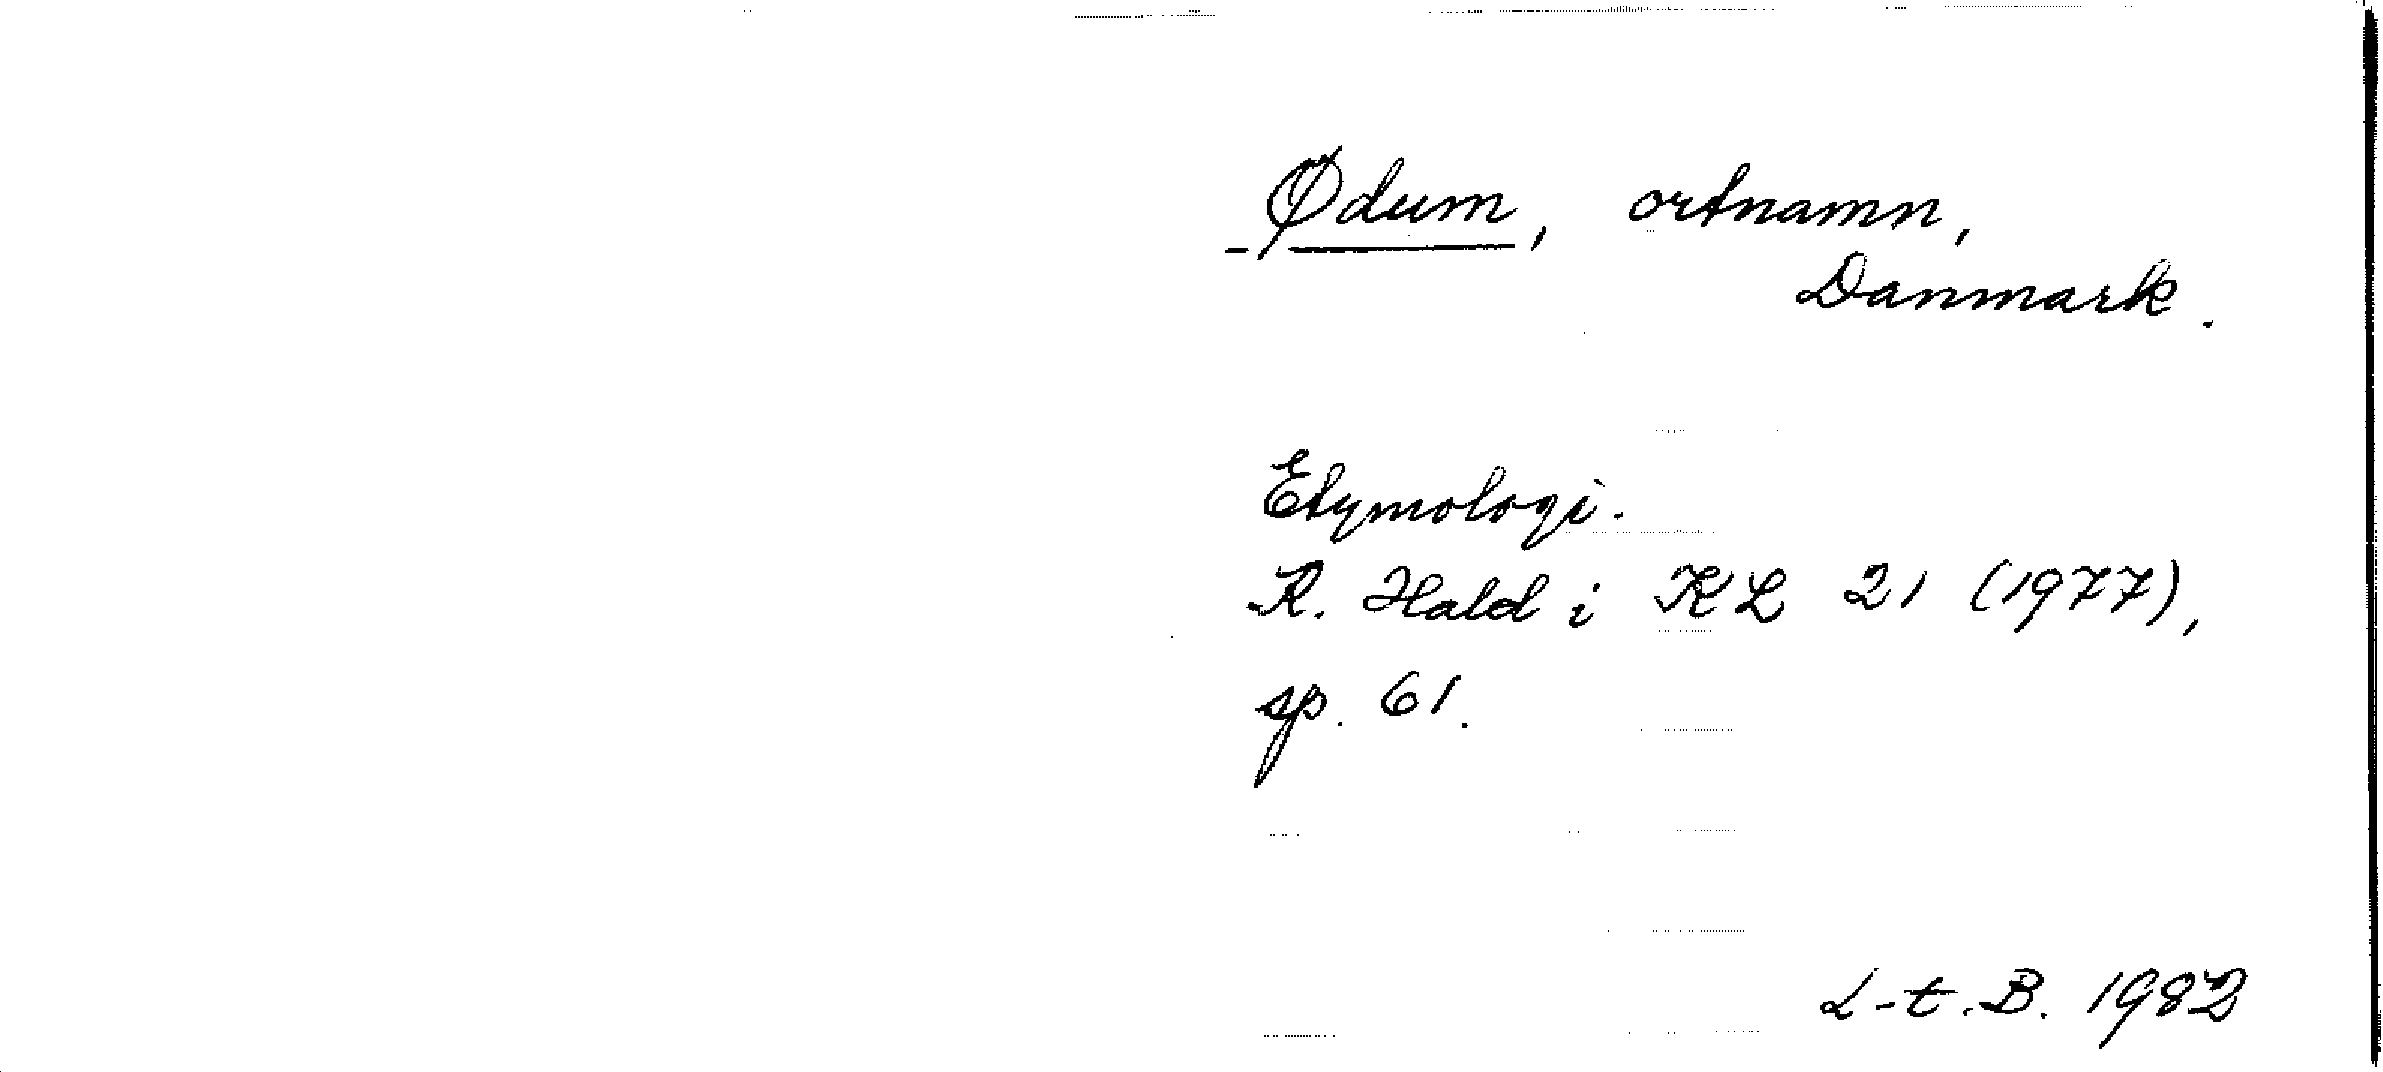 Ødum, ortnamn,
Danmark.
Etymologi.
K. Hald i KL 21 (1977),
sp. 61.
L-t. B. 1982